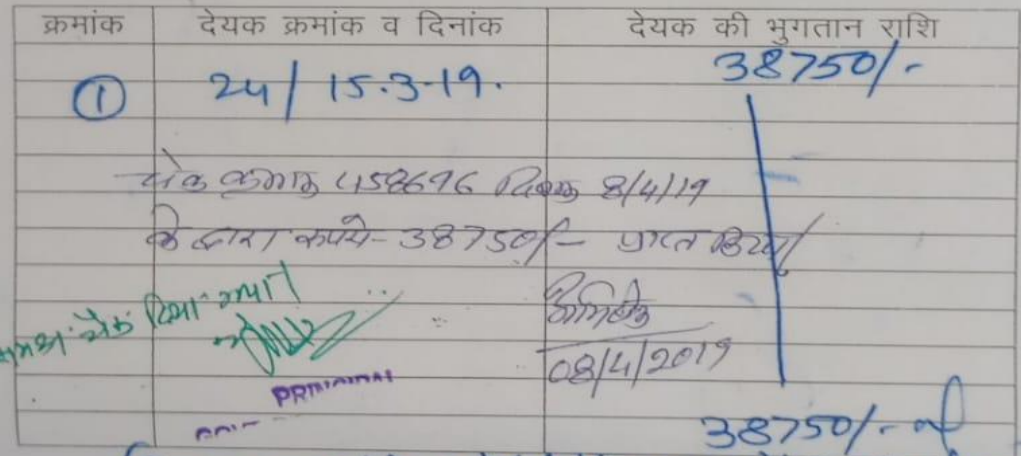 क्रमांक देयक क्रमांक व दिनांक देयक की भुगतान राशि
① 24/15.3-19. 38750/-
चेक क्रमांक 458696 दिनांक 8/4/19
के द्वारा रूपये- 38750/- प्राप्त किया
समक्ष चेक दिया गया
08/4/2019
PRINCIPAL
38750/-